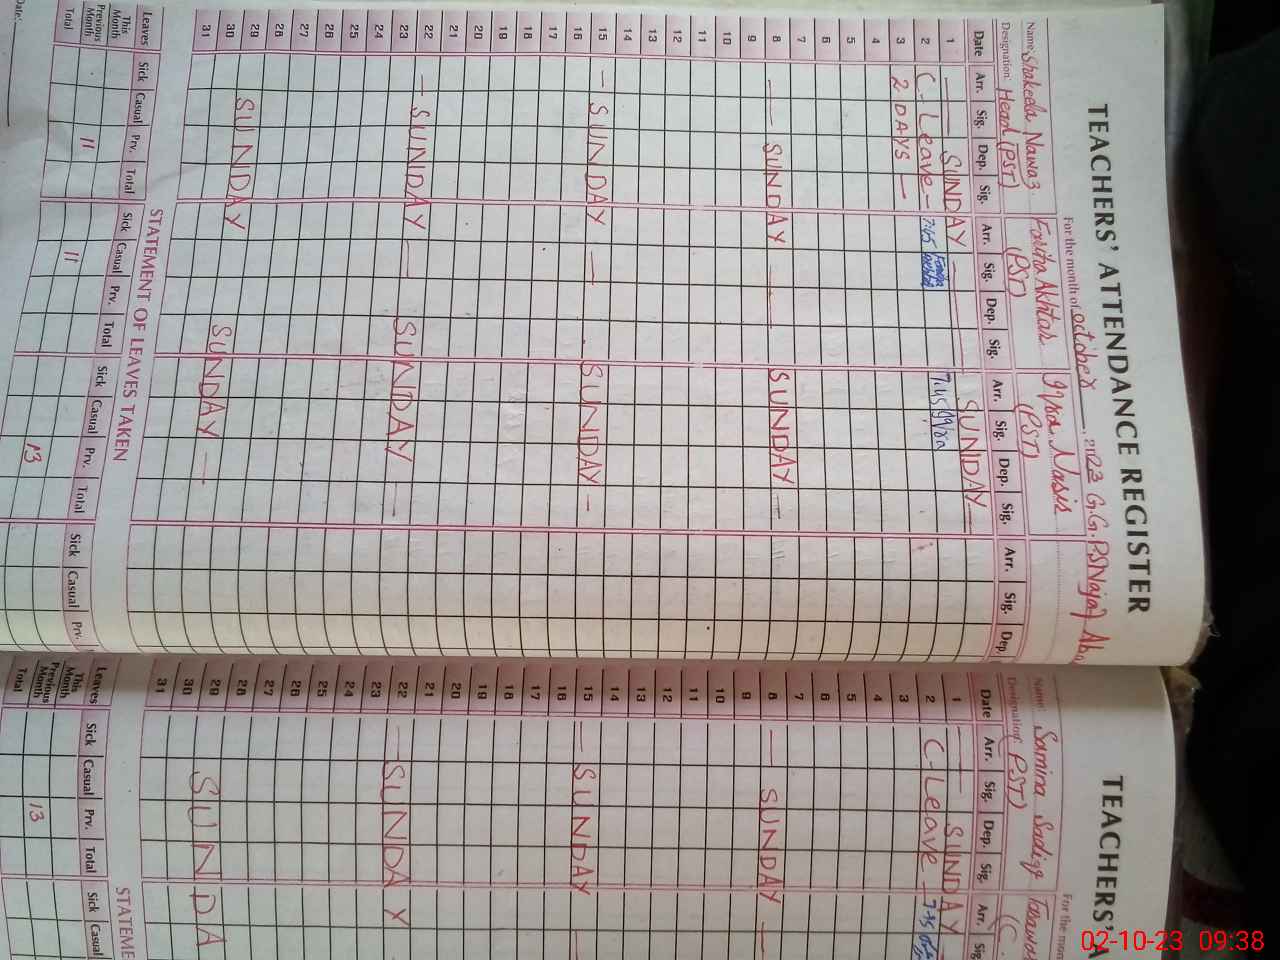 TEACHERS' ATTENDANCE REGISTER
For the month of October, 2023 G.G.P.S Najaf Aba
Name: Shakeela Nawaz Fariha Akhtar Iqra Nasir
Designation: Head (PST) (PST) (PST)
Date Arr. Sig. Dep. Sig. Arr. Sig. Dep. Sig. Arr. Sig. Dep. Sig. Arr. Sig. Dep.
1 — SUNDAY — SUNDAY —
2 C-Leave - 7:45 7:45 Iqra
3 2 DAYS —
4
5
6
7
8 — SUNDAY — SUNDAY —
9
10
11
12
13
14
15 — SUNDAY — SUNDAY —
16
17
18
19
20
21
22 — SUNDAY — SUNDAY —
23
24
25
26
27
28
29 SUNDAY SUNDAY —
30
31
STATEMENT OF LEAVES TAKEN
Leaves Sick Casual Prv. Total Sick Casual Prv. Total Sick Casual Prv. Total Sick Casual Prv.
This Month
Previous Month 11 11 13
Total
Date:
TEACHERS' A
For the mon
Name: Samina Sadiq
Designation: (PST) (C
Date Arr. Sig. Dep. Sig. Arr. Sig.
1 — SUNDAY
2 C-Leave - 7:35
3
4
5
6
7
8 — SUNDAY —
9
10
11
12
13
14
15 — SUNDAY —
16
17
18
19
20
21
22 — SUNDAY
23
24
25
26
27
28
29 SUNDA
30
31
STATEME
Leaves Sick Casual Prv. Total Sick Casual
This Month
Previous Month 13
Total
02-10-23 09:38